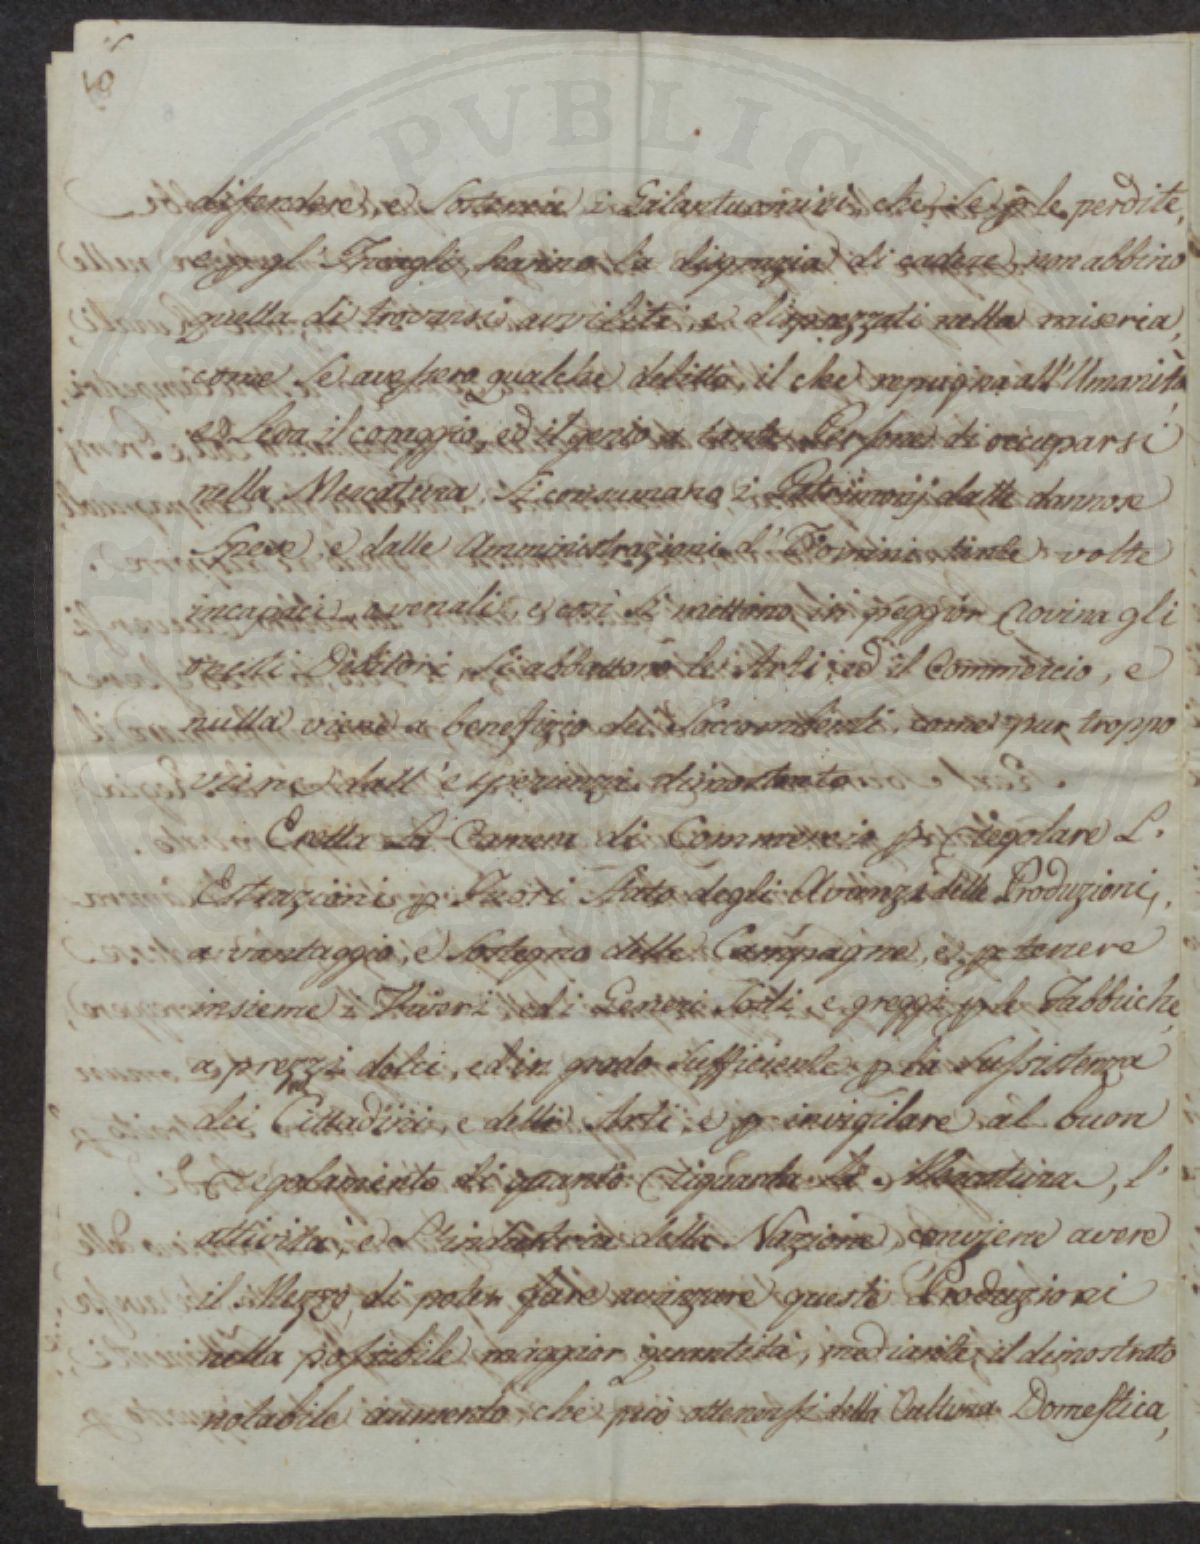 PVBLIC
difendere, e sostenere i Galantuomini, che se p le perdite,
e p gl' Incagli, hanno la disgrazia di cadere, non abbino
quella di trovarsi avviliti, e disprezzati nella miseria,
come se avessero qualche delitto, il che repugna all'Umanità
e Leva il coraggio, ed il genio a tante Persone di occuparsi
nella Mercatura, si consumano i Patrimonij dalle dannose
Spese, e dalle Amministrazioni d' Uomini tante volte
incapaci, e venali, e così si mettono in peggior Rovina gli
onesti Debitori, si abbattono le Arti, ed il Commercio, e
nulla viene a benefizio dei Soccombenti, come pur troppo
viene dall' esperienza dimostrato.
Eretta la Camera di Commercio p Regolare L'
Estrazioni p Fuori Stato degli Avanzi delle Produzioni,
a vantaggio, e Sostegno delle Campagne, e p tenere
insieme i Viveri, ed i Generi Sodi, e greggi p le Fabbriche,
a prezzi dolci, ed in grado sufficiente p la Sussistenza
dei Cittadini, e delle Arti, e p invigilare al buon
Regolamento di quanto Riguarda la Mercatura, l'
attività, e L'industria della Nazione, conviene avere
il Mezzo di poter fare avanzare queste Produzioni
nella possibile maggior quantità, mediante il dimostrato
notabile aumento, che può ottenersi della Cultura Domestica,